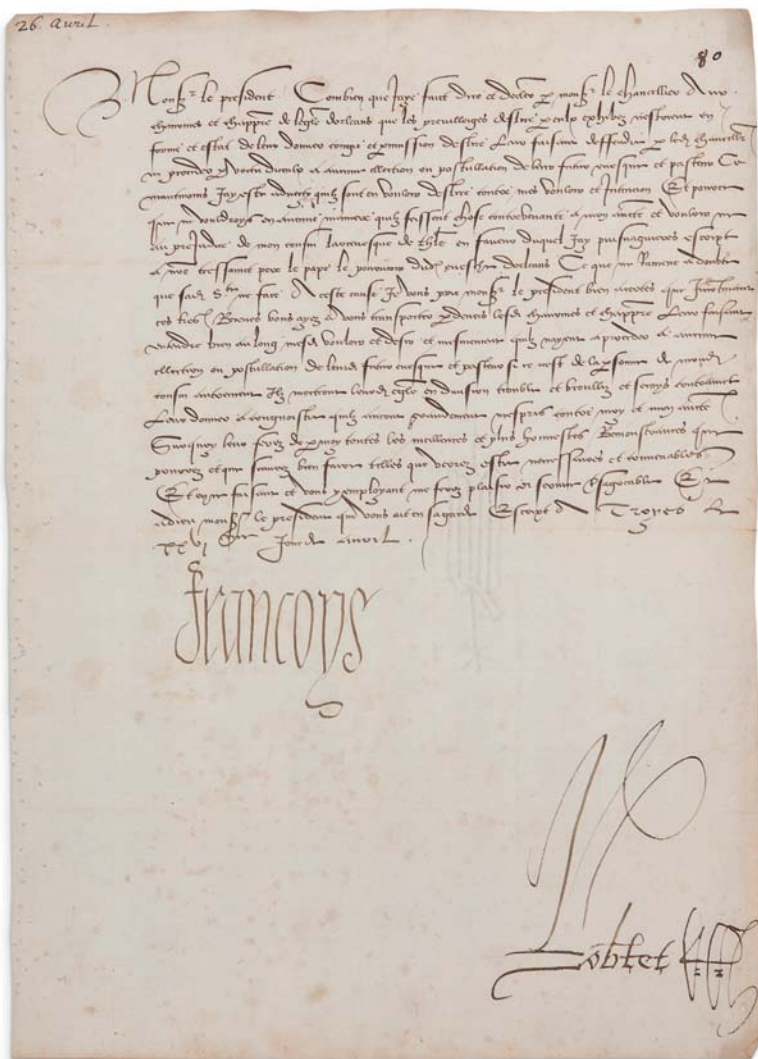 26. Avril.
80
Mons.r le president Combien que Jaye faict dire et declerer par mons.r le chancellier A vo
chanoines et chappre de leglē dorleans que les previlleiges deslire par eulx exhibez nestoient en
forme et estat de leur donner congé et permission deslire Leur faisant deffendre par led. chancellier
ne proceder en vertu diceulx a aucune ellection ou postullation de leur futur evesque et pasteur Ce
neantmoins Jay esté adverty quilz sont en vouloir deslire contre mes vouloir et Intencion Et pource
que ne vouldroys en aucune maniere quilz feissent chose contrevenante a mon aucté et vouloir ne
au prejudice de mon cousin larcevesque de thle en faveur duquel Jay puisnagueres escript
a nre tressainct pere le pape le pourveoir dud. evesché dorleans Ce que ne faict a doubter
que sad. S.té ne face A ceste cause Je vous prie mons.r le president bien acertes que Incontinant
ces lres Receues vous ayez a vous transporter pardevers lesd. chanoines et chappre Leur faisant
entendre bien au long mesd. vouloir et desir et mesmement quilz nayent a proceder a aucune
ellection ou postullation de leurd. futur evesque et pasteur si ce nest de la personne de mond.
cousin autrement Ilz mectront leurd. eglē en division trouble et brouilliz et seroys contrainct
Leur donner a congnoistre quilz auront grandement mespris contre moy et mon aucté
Surquoy leur ferez de par moy toutes les meilleures et plus honnestes Remonstrances que
pourrez et que scaurez bien faire telles que verrez estre necessaires et convenables
Et en ce faisant et vous y employant me ferez plaisir et service tresagreable Et
adieu mons.r le president qui vous ait en sa garde Escript A Troyes le
xxvi me Jour de avril.
Francoys
Robertet